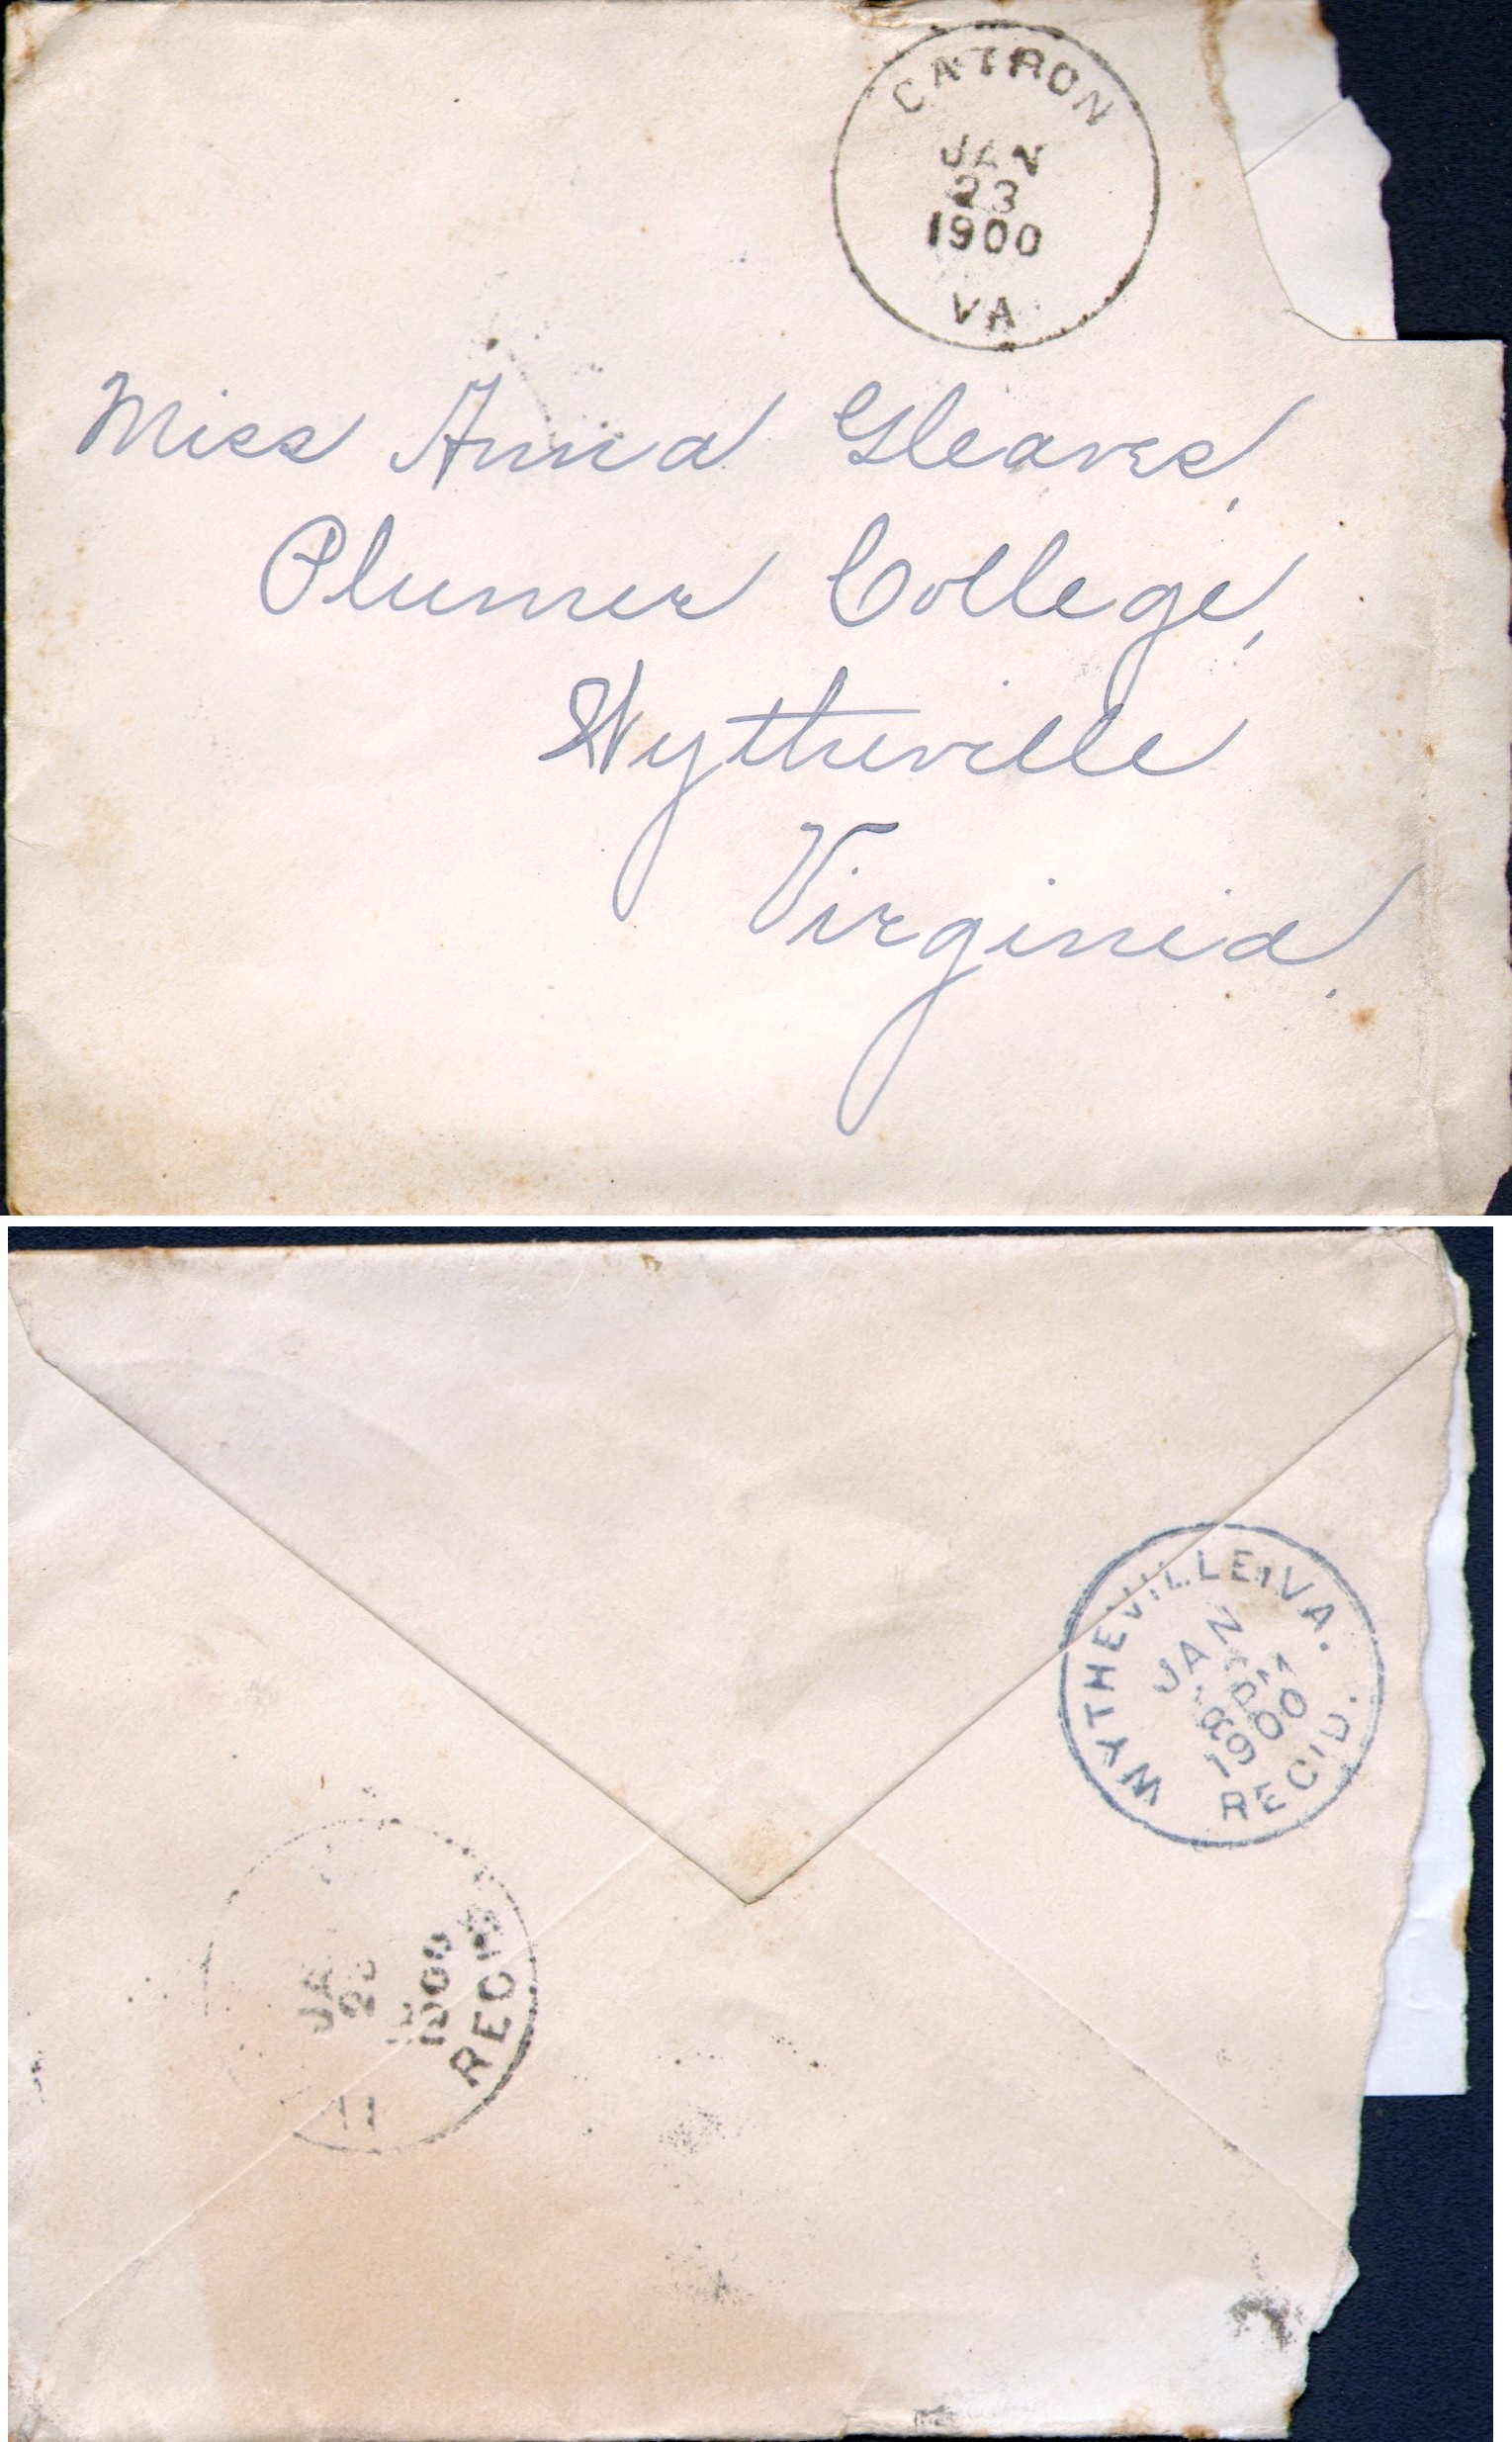 CATRON
JAN
23
1900
VA
Miss Anna Gleaves,
Plumer College,
Wytheville
Virginia.
WYTHEVILLE, VA.
JAN
1900
REC'D.
JA
1900
REC'D